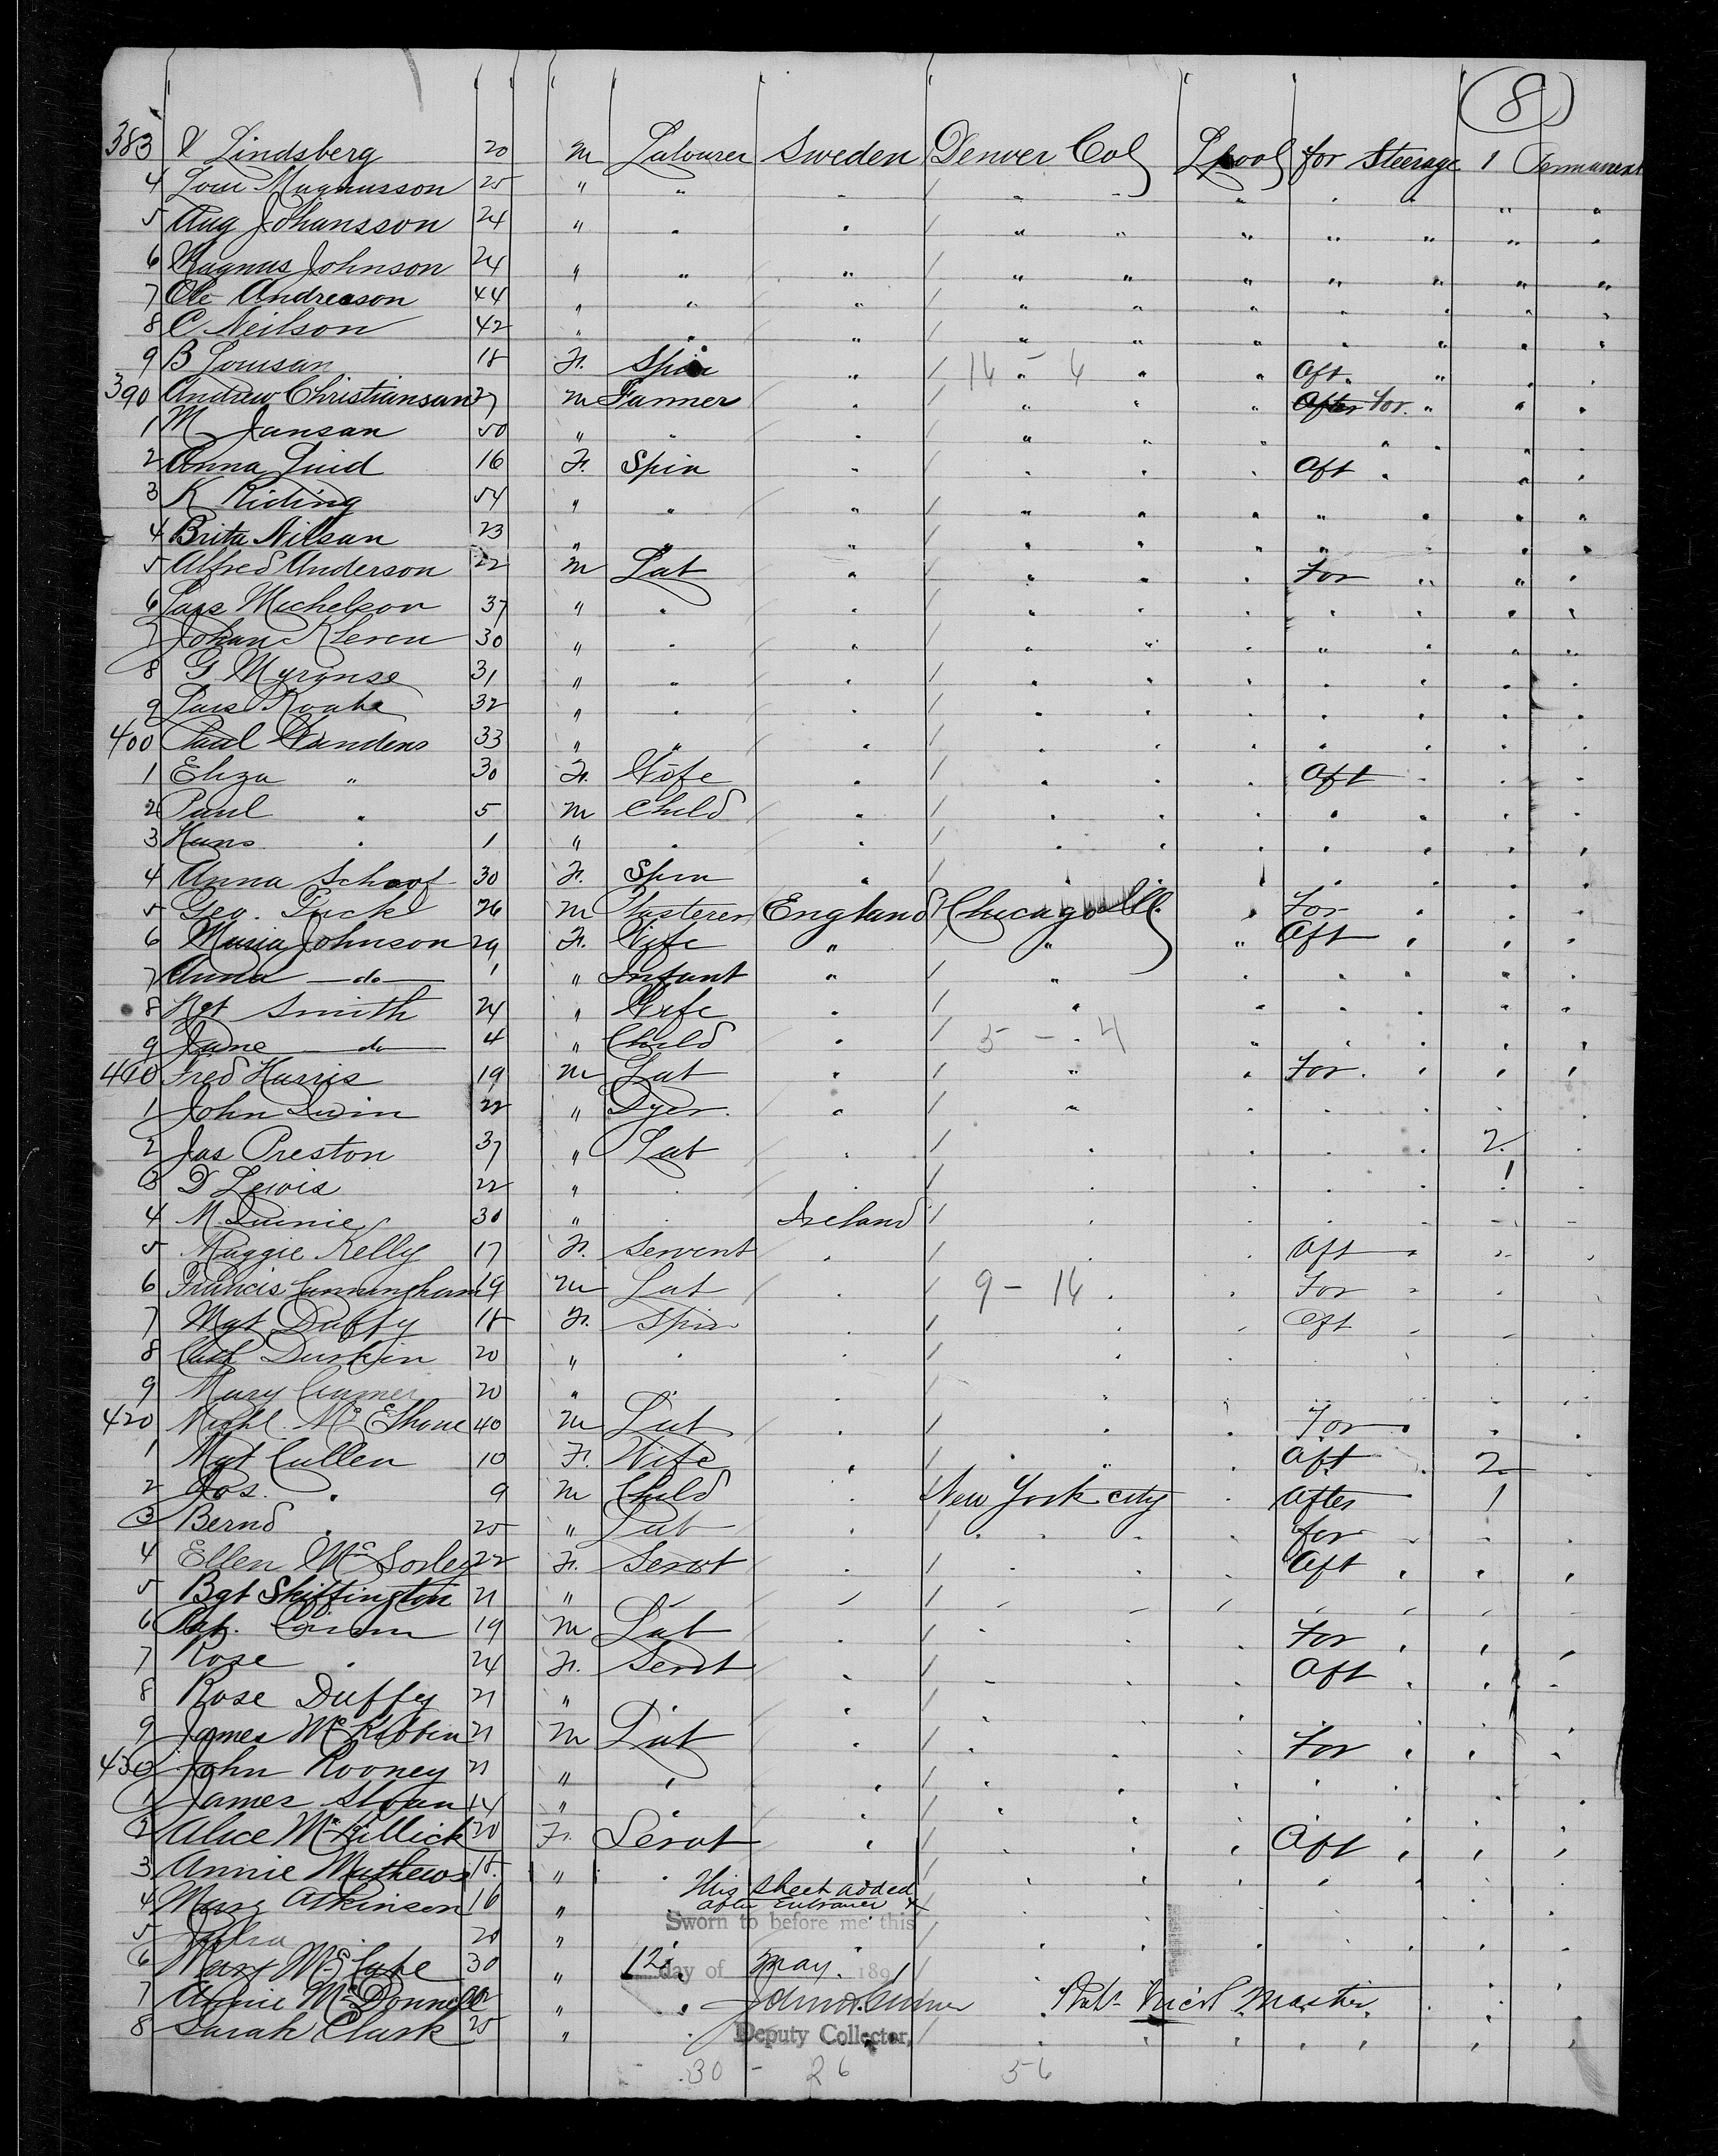 8
383 Lindsberg 20 m Labourer Sweden Denver Col Lpool for Steerage 1 Permanent
4 Magnusson 25 " " " " " " " " "
5 Aug Johansson 24 " " " " " " " " " "
6 Magnus Johnson 24 " " " " " " " " " "
7 Ole Andreason 44 " " " " " " " " " "
8 C Neilson 42 " " " " " " " " " "
9 B 18 F. Spin " 14 - 4 " " Aft " " "
390 Andrew Christiansen 27 m Farmer " " " " After For. " " "
1 M Jansan 50 " " " " " " " " " "
2 Anna Lind 16 F. Spin " " " " Aft " " "
3 K Riding 54 " " " " " " " " " "
4 Brita Nilsan 23 " " " " " " " " " "
5 Alfred Anderson 22 m Lab " " " " For " " "
6 Lars Michelson 37 " " " " " " " " " "
7 Johan 30 " " " " " " " " " "
8 G 31 " " " " " " " " " "
9 Lars 32 " " " " " " " " " "
400 Paul 33 " " " " " " " " " "
1 Eliza " 30 F. Wife " " " " Aft " " "
2 Paul " 5 m Child " " " " " " " "
3 Hans " 1 " " " " " " " " " "
4 Anna Schoof 30 F. Spin " " " " " " " "
5 Geo. Tuck 26 m Plasterer England Chicago Ill. " For " " "
6 Maria Johnson 29 F. Wife " " " Aft " " "
7 Anna do 1 " Infant " " " " " " "
8 Mgt Smith 24 " Wife " " " " " " "
9 Jane do 4 " Child " 5 - 4 " " " " "
410 Fred Harris 19 m Lab " " " For. " " "
1 John 22 " Dyer. " " " " " " "
2 Jas Preston 37 " Lab " " " " " 2 "
3 D Lewis 22 " " " " " " " 1 "
4 M 30 " " Ireland " " " " " "
5 Maggie Kelly 17 F. Servent " " " Aft " " "
6 Francis Cunningham 19 m Lab " 9 - 14 " " For " " "
7 Mgt Duffy 18 F. Spin " " " Aft " " "
8 Cath Durkin 20 " " " " " " " " "
9 Mary 20 " " " " " " " " "
420 Michl. Mc 40 m Lab " " " For " " "
1 Mgt Cullen 10 F. Wife " " " Aft " 2 "
2 Jos. " 9 m Child " New York city " After 1
3 Bernd " 25 " Lab " " " " for " " "
4 Ellen McSorley 22 F. Servt " " " " Aft " " "
5 Bgt Skiffington 21 " " " " " " " " " "
6 Pat. 19 m Lab " " " " For " " "
7 Rose " 24 F. Servt " " " " Aft " " "
8 Rose Duffy 21 " " " " " " " " " "
9 James McKibbin 21 m Lab " " " " For " " "
430 John Rooney 21 " " " " " " " " " "
1 James Sloan 14 " " " " " " " " " "
2 Alice McKillick 20 F. Servt " " " " Aft " " "
3 Annie Mathews 18. " " " " " " " " "
This sheet added
4 Mary Atkinson 16 " after Entrance
Sworn to before me this
5 Julia 20 "
6 Mary McCabe 30 " 12 day of May. 189
7 Annie McDonnell " Master
8 Sarah Clark 25 " Deputy Collector,
30 - 26 56